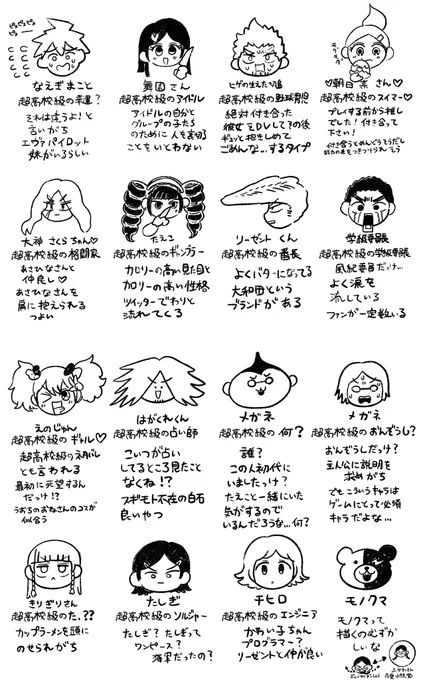 ピッピッピッ
なえぎまこと
超高校級の幸運?
それは違うよ!と
言いがち
エヴァパイロット
妹がいるらしい
舞園さん
超高校級のアイドル
アイドルの自分と
グループの子たち
のために人を裏切る
こともいとわない
ヒゲの生えた切歯
超高校級の野球児
絶対付き合った
彼女をDVして?の後
ギュッと抱きしめて
ごめんな…するタイプ
♡朝日奈さん♡
超高校級のスイマー♡
プレイする前から推し
でした!付き合って
下さい!
付き合うとめんどうそうだし
大神さくらちゃん♡
超高校級の格闘家
あさひなさんと
仲良し♡
あさひなさんを
肩に抱えられる
つよい
たえこ
超高校級のギャンブラー
カロリーの高い見た目と
カロリーの高い性格
ツイッターでわりと
流れてくる
リーゼントくん
超高校級の番長
よくバターになってる
大和田という
ブランドがある
学級委員長
超高校級の学級委員長
風紀委員だっけ…
よく涙を
流している
ファンが一定数いる
えのじゅん
超高校級のギャル♡
超高校級のネタバレ
とも言われる
最初に死望するん
だっけ!?
うおちのおねさんのコスが
似合う
はがくれくん
超高校級の占い師
こいつが占い
してるところ見たこと
なくね!?
スギモト不在の白石
良いやつ
メガネ
超高校級の何?
誰?
この人初代に
いましたっけ?
たえこと一緒にいた
気がするので
いるんだろうな…何?
メガネ
超高校級のおんぞうし?
おんぞうしだっけ?
主人公に説明を
求めがち
でもこういうキャラは
ゲームにとって必須
キャラだよな…
きりぎりさん
超高校級のた,??
カップラーメンを頭に
のせられがち
たしぎ
超高校級のソルジャー
たしぎ?たしぎって
ワンピース?
海軍だったの?
チヒロ
超高校級のエンジニア
かわい子ちゃん
プログラマー?
リーゼントと仲が良い
モノクマ
モノクマって
描くのむずか
しいな